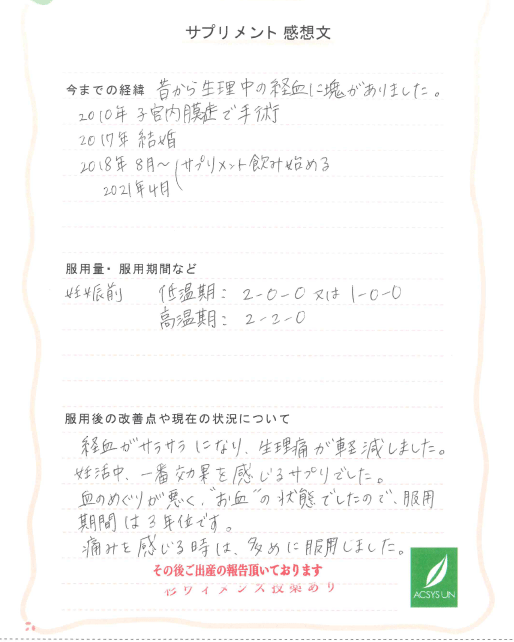 サプリメント 感想文
今までの経緯 昔から生理中の経血に塊がありました。
2010年 子宮内膜症で手術
2017年 結婚
2018年 8月〜 サプリメント飲み始める
2021年4月
服用量・服用期間など
妊娠前 低温期: 2-0-0 又は 1-0-0
高温期: 2-2-0
服用後の改善点や現在の状況について
経血がサラサラになり、生理痛が軽減しました。
妊活中、一番効果を感じるサプリでした。
血のめぐりが悪く、"お血"の状態でしたので、服用
期間は3年位です。
痛みを感じる時は、多めに服用しました。
その後ご出産の報告頂いております
ACSYSUN